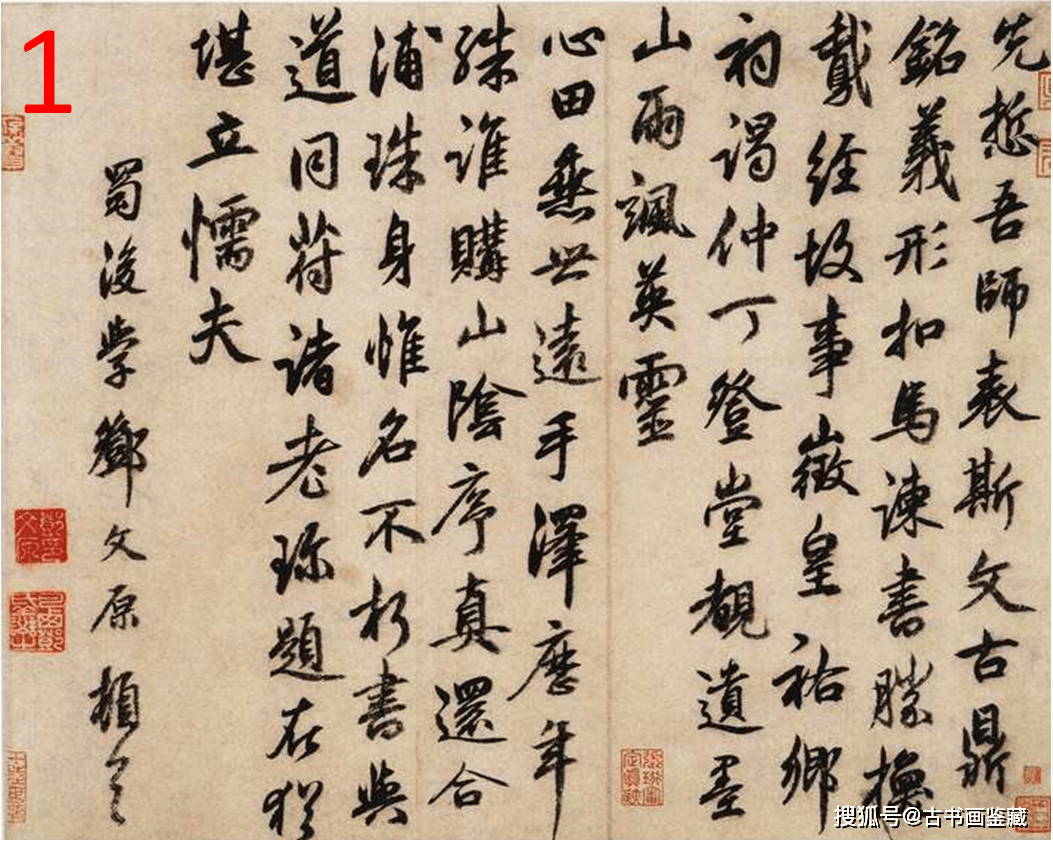 1
先悊吾師表斯文古鼎
銘義形扣馬諫書勝換
鵞經故事徵皇祐鄉
祠謁仲丁登堂覩遺墨
山雨颯英靈
心田垂世遠手澤歷年
殊誰購山陰序真還合
浦珠身惟名不朽書與
道同符諸老珎題在猶
堪立懦夫
蜀後學鄧文原頓首
搜狐号@古书画鉴藏